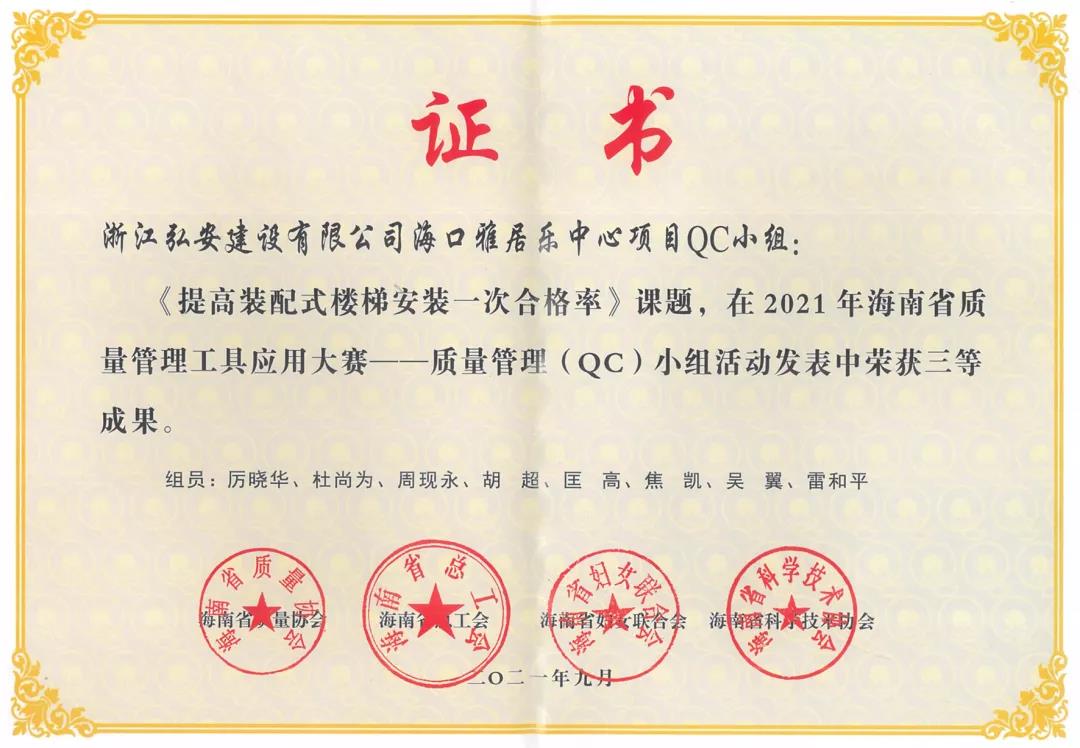 证 书
浙江弘安建设有限公司海口雅居乐中心项目QC小组：
《提高装配式楼梯安装一次合格率》课题，在2021年海南省质
量管理工具应用大赛——质量管理（QC）小组活动发表中荣获三等
成果。
组员：厉晓华、杜尚为、周现永、胡 超、匡 高、焦 凯、吴 翼、雷和平
海南省质量协会
海南省总工会
海南省妇女联合会
海南省科学技术协会
海南省质量协会 海南省总工会 海南省妇女联合会 海南省科学技术协会
二〇二一年九月